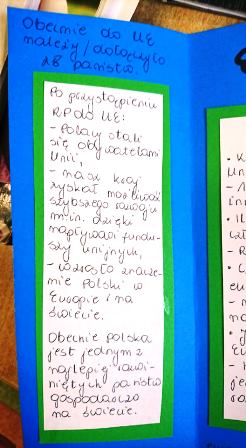 Obecnie do UE
należy/dołączyło
28 państw.
Po przystąpieniu
RP do UE:
- Polacy stali
się obywatelami
Unii,
- nasz kraj
zyskał możliwość
szybszego rozwoju
m.in. dzięki
napływowi fundu-
szy unijnych,
- wzrosło znacze-
nie Polski w
Europie i na
świecie.
Obecnie Polska
jest jednym z
najlepiej rozwi-
niętych państw
gospodarczo
na świecie.